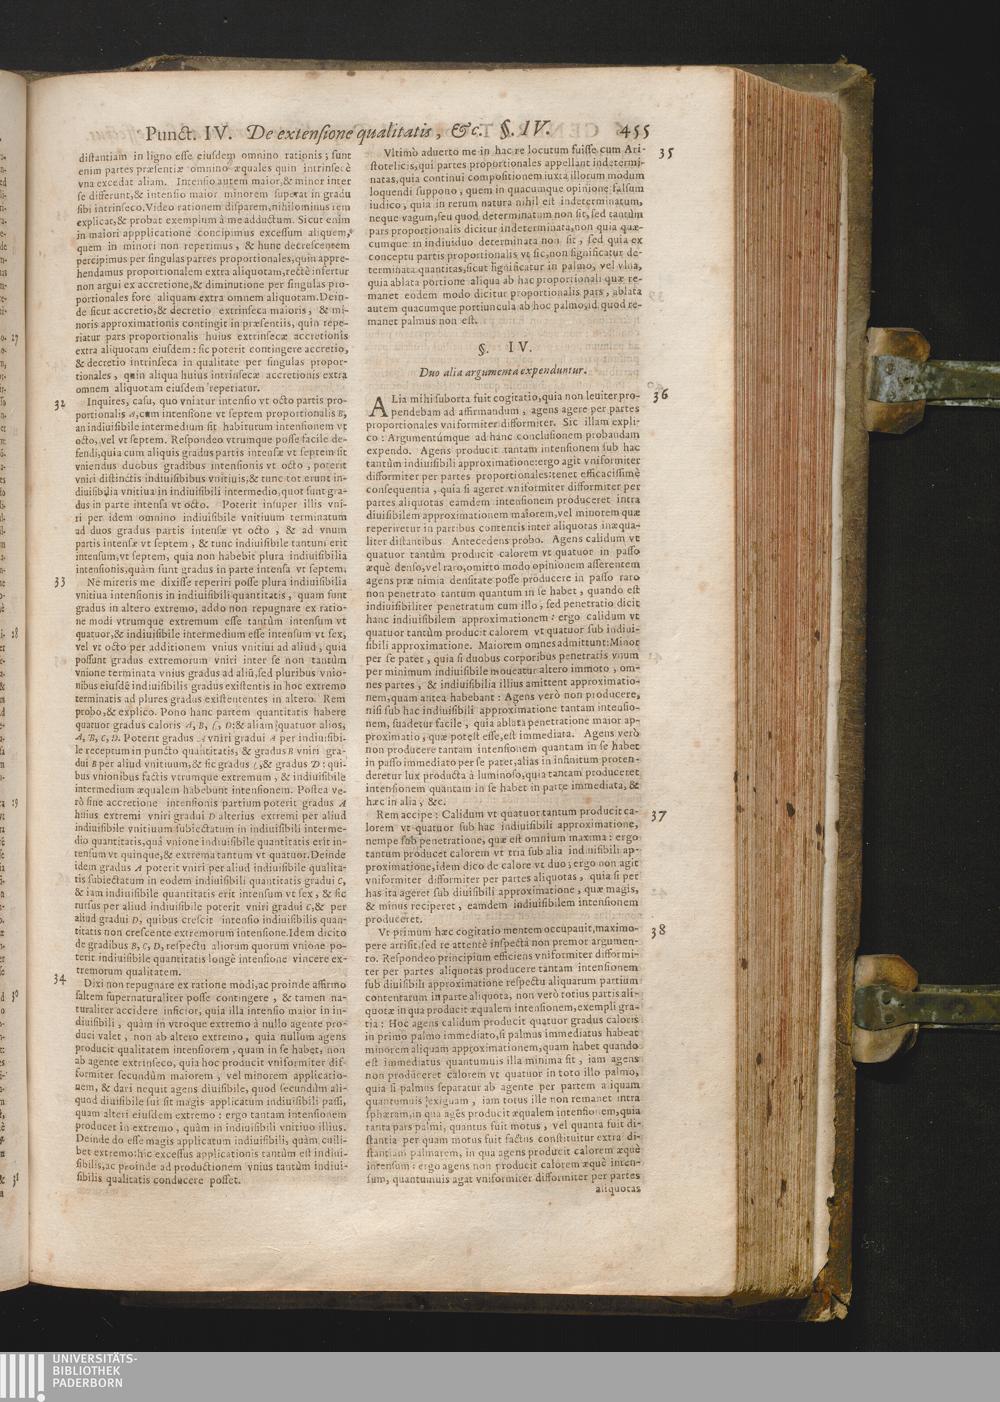 Punct. IV. De extensione qualitatis, &c. §. IV. 455
distantiam in ligno esse eiusdem omnino rationis; sunt
enim partes præsentiæ omnino æquales quin intrinsecè
vna excedat aliam. Intensio autem maior, & minor inter
se differunt, & intensio maior minorem superat in gradu
sibi intrinseco. Video rationem disparem, nihilominus rem
explicat, & probat exemplum à me adductum. Sicut enim
in maiori appplicatione concipimus excessum aliquem,
quem in minori non reperimus, & hunc decrescentem
percipimus per singulas partes proportionales, quin appre-
hendamus proportionalem extra aliquotam, rectè infertur
non argui ex accretione, & diminutione per singulas pro-
portionales fore aliquam extra omnem aliquotam. Dein-
de sicut accretio, & decretio extrinseca maioris, & mi-
noris approximationis contingit in præsentiis, quin repe-
riatur pars proportionalis huius extrinsecæ accretionis
extra aliquotam eiusdem: sic poterit contingere accretio,
& decretio intrinseca in qualitate per singulas propor-
tionales, quin aliqua huius intrinsecæ accretionis extra
omnem aliquotam eiusdem reperiatur.
32 Inquires, casu, quo vniatur intensio vt octo partis pro-
portionalis A, cum intensione vt septem proportionalis B,
an indiuisibile intermedium sit habiturum intensionem vt
octo, vel vt septem. Respondeo vtrumque posse facile de-
fendi, quia cum aliquis gradus partis intensæ vt septem sit
vniendus duobus gradibus intensionis vt octo, poterit
vniri distinctis indiuisibibus vnitiuis, & tunc tot erunt in-
diuisibilia vnitiua in indiuisibili intermedio, quot sunt gra-
dus in parte intensa vt octo. Poterit insuper illis vni-
ri per idem omnino indiuisibile vnitiuum terminatum
ad duos gradus partis intensæ vt octo, & ad vnum
partis intensæ vt septem, & tunc indiuisibile tantum erit
intensum, vt septem, quia non habebit plura indiuisibilia
intensionis, quàm sunt gradus in parte intensa vt septem.
33 Ne mireris me dixisse reperiri posse plura indiuisibilia
vnitiua intensionis in indiuisibili quantitatis, quam sunt
gradus in altero extremo, addo non repugnare ex ratio-
ne modi vtrumque extremum esse tantùm intensum vt
quatuor, & indiuisibile intermedium esse intensum vt sex,
vel vt octo per additionem vnius vnitiui ad aliud, quia
possunt gradus extremorum vniri inter se non tantùm
vnione terminata vnius gradus ad aliũ, sed pluribus vnio-
nibus eiusdē indiuisibilis gradus existentis in hoc extremo
terminatis ad plures gradus existententes in altero. Rem
probo, & explico. Pono hanc partem quantitatis habere
quatuor gradus caloris A, B, C, D: & aliam quatuor alios,
A, B, C, D. Poterit gradus A vniri gradui A per indiuisibi-
le receptum in puncto quantitatis, & gradus B vniri gra-
dui B per aliud vnitiuum, & sic gradus C, & gradus D: qui-
bus vnionibus factis vtrumque extremum, & indiuisibile
intermedium æqualem habebunt intensionem. Postea ve-
rò sine accretione intensionis partium poterit gradus A
huius extremi vniri gradui D alterius extremi per aliud
indiuisibile vnitiuum subiectatum in indiuisibili interme-
dio quantitatis, quâ vnione indiuisibile quantitatis erit in-
tensum vt quinque, & extrema tantum vt quatuor. Deinde
idem gradus A poterit vniri per aliud indiuisibile qualita-
tis subiectatum in eodem indiuisibili quantitatis gradui C,
& iam indiuisibile quantitatis erit intensum vt sex, & sic
rursus per aliud indiuisibile poterit vniri gradui C, & per
aliud gradui D, quibus crescit intensio indiuisibilis quan-
titatis non crescente extremorum intensione. Idem dicito
de gradibus B, C, D, respectu aliorum quorum vnione po-
terit indiuisibile quantitatis longè intensione vincere ex-
tremorum qualitatem.
34 Dixi non repugnare ex ratione modi, ac proinde affirmo
saltem supernaturaliter posse contingere, & tamen na-
turaliter accidere inficior, quia illa intensio maior in in-
diuisibili, quàm in vtroque extremo à nullo agente pro-
duci valet, non ab altero extremo, quia nullum agens
producit qualitatem intensiorem, quam in se habet, non
ab agente extrinseco, quia hoc producit vniformiter dif-
formiter secundùm maiorem, vel minorem applicatio-
nem, & dari nequit agens diuisibile, quod secundùm ali-
quod diuisibile sui sit magis applicatum indiuisibili passi,
quam alteri eiusdem extremo: ergo tantam intensionem
producet in extremo, quàm in indiuisibili vnitiuo illius.
Deinde do esse magis applicatum indiuisibili, quàm cuili-
bet extremo: hic excessus applicationis tantùm est indiui-
sibilis, ac proinde ad productionem vnius tantùm indiui-
sibilis qualitatis conducere posset.
Vltimò aduerto me in hac re locutum fuisse cum Ari- 35
stotelicis, qui partes proportionales appellant indetermi-
natas, quia continui compositionem iuxta illorum modum
loquendi suppono, quem in quacumque opinione falsum
iudico, quia in rerum natura nihil est indeterminatum,
neque vagum, seu quod determinatum non sit, sed tantùm
pars proportionalis dicitur indeterminata, non quia quæ-
cumque in indiuiduo determinata non sit, sed quia ex
conceptu partis proportionalis vt sic, non significatur de-
terminata quantitas, sicut significatur in palmo, vel vlna,
quia ablata portione aliqua ab hac proportionali quæ re-
manet eodem modo dicitur proportionalis pars, ablata
autem quacumque portiuncula ab hoc palmo, id quod re-
manet palmus non est.
§. IV.
Duo alia argumenta expenduntur.
ALia mihi suborta fuit cogitatio, quia non leuiter pro- 36
pendebam ad affirmandum, agens agere per partes
proportionales vniformiter difformiter. Sic illam expli-
co: Argumentúmque ad hanc conclusionem probandam
expendo. Agens producit tantam intensionem sub hac
tantùm indiuisibili approximatione: ergo agit vniformiter
difformiter per partes proportionales: tenet efficacissimè
consequentia, quia si ageret vniformiter difformiter per
partes aliquotas eamdem intensionem produceret intra
diuisibilem approximationem maiorem, vel minorem quæ
reperiretur in partibus contentis inter aliquotas inæqua-
liter distantibus Antecedens probo. Agens calidum vt
quatuor tantùm producit calorem vt quatuor in passo
æquè denso, vel raro, omitto modo opinionem asserentem
agens præ nimia densitate posse producere in passo raro
non penetrato tantum quantum in se habet, quando est
indiuisibiliter penetratum cum illo, sed penetratio dicit
hanc indiuisibilem approximationem: ergo calidum vt
quatuor tantùm producit calorem vt quatuor sub indiui-
sibili approximatione. Maiorem omnes admittunt: Minor
per se patet, quia si duobus corporibus penetratis vnum
per minimum indiuisibile moueatur altero immoto, om-
nes partes, & indiuisibilia illius amittent approximatio-
nem, quam antea habebant: Agens verò non producere,
nisi sub hac indiuisibili approximatione tantam intensio-
nem, suadetur facile, quia ablata penetratione maior ap-
proximatio, quæ potest esse, est immediata. Agens verò
non producere tantam intensionem quantam in se habet
in passo immediato per se patet, alias in infinitum proten-
deretur lux producta à luminoso, quia tantam produceret
intensionem quantam in se habet in parte immediata, &
hæc in alia, &c.
Rem accipe: Calidum vt quatuor tantum producit ca- 37
lorem vt quatuor sub hac indiuisibili approximatione,
nempe sub penetratione, quæ est omnium maxima: ergo
tantum producet calorem vt tria sub alia indiuisibili ap-
proximatione, idem dico de calore vt duo; ergo non agit
vniformiter difformiter per partes aliquotas, quia si per
has ita ageret sub diuisibili approximatione, quæ magis,
& minus reciperet, eamdem indiuisibilem intensionem
produceret.
Vt primum hæc cogitatio mentem occupauit, maximo- 38
pere arrisit, sed re attentè inspecta non premor argumen-
to. Respondeo principium efficiens vniformiter difformi-
ter per partes aliquotas producere tantam intensionem
sub diuisibili approximatione respectu aliquarum partium
contentarum in parte aliquota, non verò totius partis ali-
quotæ in qua producit æqualem intensionem, exempli gra-
tia: Hoc agens calidum producit quatuor gradus caloris
in primo palmo immediato, si palmus immediatus habeat
minorem aliquam approximationem, quam habet quando
est immediatus quantumuis illa minima sit, iam agens
non produceret calorem vt quatuor in toto illo palmo,
quia si palmus separatur ab agente per partem aliquam
quantumuis exiguam, iam totus ille non remanet intra
sphæram, in qua agēs producit æqualem intensionem, quia
tanta pars palmi, quantus fuit motus, vel quanta fuit di-
stantia per quam motus fuit factus constituitur extra di-
stantiam palmarem, in qua agens producit calorem æquè
intensum: ergo agens non producit calorem æquè inten-
sum, quantumuis agat vniformiter difformiter per partes
aliquotas
UNIVERSITÄTS-
BIBLIOTHEK
PADERBORN